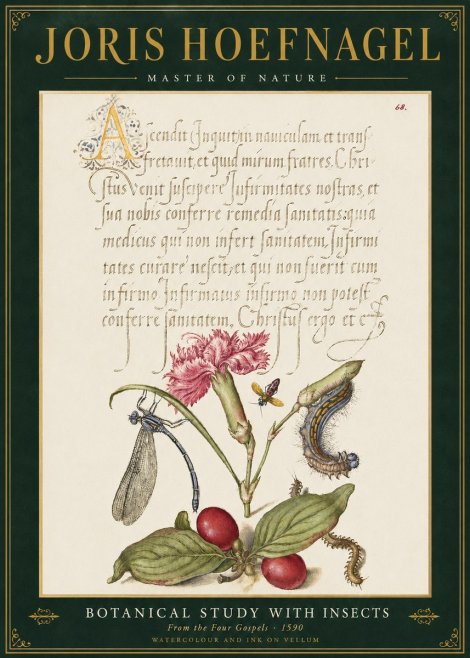 JORIS HOEFNAGEL
MASTER OF NATURE
68.
Ascendit Inquit in naviculam et trans
fretavit, et quid mirum fratres. Chri
stus venit suscipere Infirmitates nostras, et
sua nobis conferre remedia sanitatis: quia
medicus qui non infert sanitatem, Infirmi
tates curare nescit, et qui non fuerit cum
infirmo Infirmatus infirmo non potest
conferre sanitatem. Christus ergo et c
BOTANICAL STUDY WITH INSECTS
From the Four Gospels · 1590
WATERCOLOUR AND INK ON VELLUM